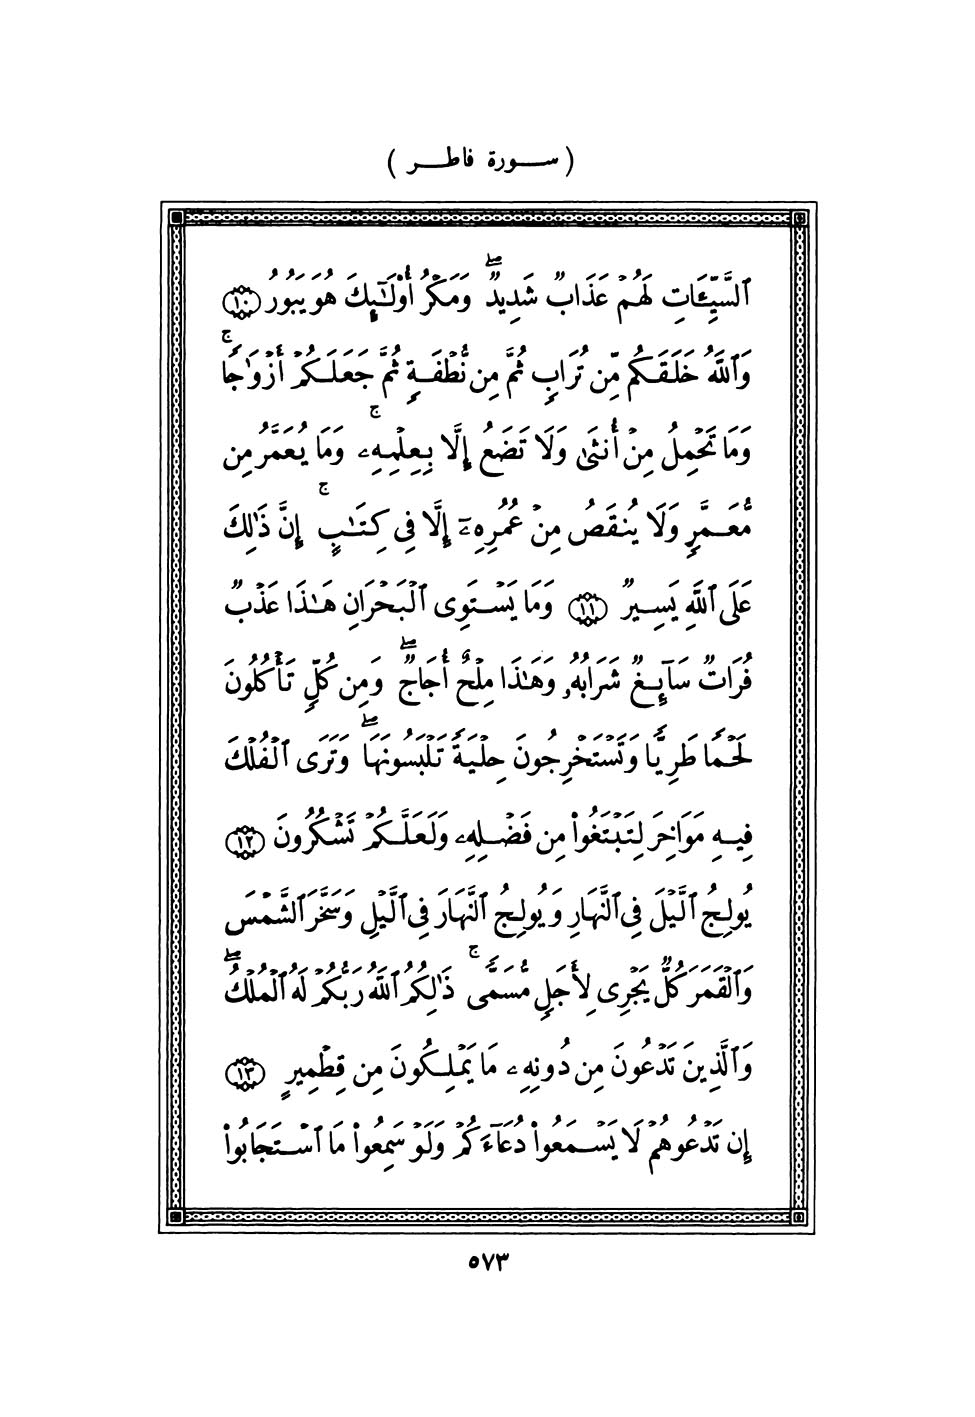 ( ســـورة فاطـــر )
ٱلسَّيِّـَٔاتِ لَهُمۡ عَذَابٞ شَدِيدٞۖ وَمَكۡرُ أُوْلَـٰٓئِكَ هُوَ يَبُورُ ١٠
وَٱللَّهُ خَلَقَكُم مِّن تُرَابٖ ثُمَّ مِن نُّطۡفَةٖ ثُمَّ جَعَلَكُمۡ أَزۡوَٰجٗاۚ
وَمَا تَحۡمِلُ مِنۡ أُنثَىٰ وَلَا تَضَعُ إِلَّا بِعِلۡمِهِۦۚ وَمَا يُعَمَّرُ مِن
مُّعَمَّرٖ وَلَا يُنقَصُ مِنۡ عُمُرِهِۦٓ إِلَّا فِى كِتَـٰبٍۚ إِنَّ ذَٰلِكَ
عَلَى ٱللَّهِ يَسِيرٞ ١١ وَمَا يَسۡتَوِى ٱلۡبَحۡرَانِ هَـٰذَا عَذۡبٞ
فُرَاتٞ سَآئِغٞ شَرَابُهُۥ وَهَـٰذَا مِلۡحٌ أُجَاجٞۖ وَمِن كُلّٖ تَأۡكُلُونَ
لَحۡمٗا طَرِيّٗا وَتَسۡتَخۡرِجُونَ حِلۡيَةٗ تَلۡبَسُونَهَاۖ وَتَرَى ٱلۡفُلۡكَ
فِيهِ مَوَاخِرَ لِتَبۡتَغُواْ مِن فَضۡلِهِۦ وَلَعَلَّكُمۡ تَشۡكُرُونَ ١٢
يُولِجُ ٱلَّيۡلَ فِى ٱلنَّهَارِ وَيُولِجُ ٱلنَّهَارَ فِى ٱلَّيۡلِ وَسَخَّرَ ٱلشَّمۡسَ
وَٱلۡقَمَرَ كُلّٞ يَجۡرِى لِأَجَلٖ مُّسَمّٗىۚ ذَٰلِكُمُ ٱللَّهُ رَبُّكُمۡ لَهُ ٱلۡمُلۡكُۖ
وَٱلَّذِينَ تَدۡعُونَ مِن دُونِهِۦ مَا يَمۡلِكُونَ مِن قِطۡمِيرٍ ١٣
إِن تَدۡعُوهُمۡ لَا يَسۡمَعُواْ دُعَآءَكُمۡ وَلَوۡ سَمِعُواْ مَا ٱسۡتَجَابُواْ
٥٧٣